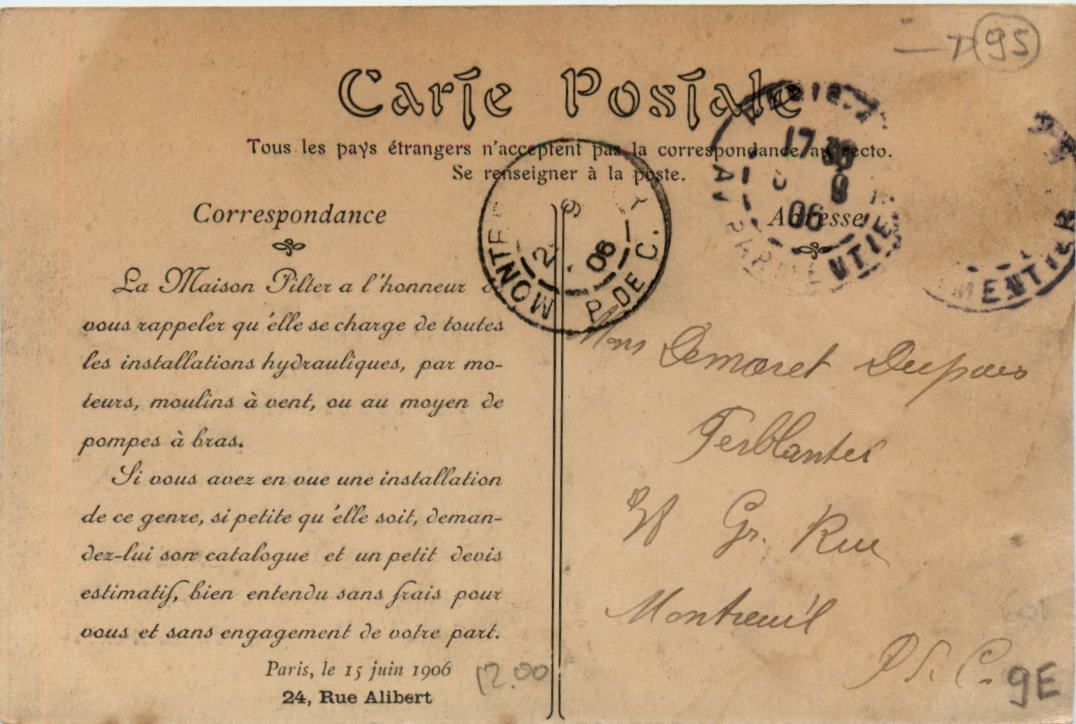 95
Carte Postale
Tous les pays étrangers n'acceptent pas la correspondance au recto.
Se renseigner à la poste.
Correspondance
La Maison Pilter a l'honneur
vous rappeler qu'elle se charge de toutes
les installations hydrauliques, par mo-
teurs, moulins à vent, ou au moyen de
pompes à bras.
Si vous avez en vue une installation
de ce genre, si petite qu'elle soit, deman-
dez-lui son catalogue et un petit devis
estimatif, bien entendu sans frais pour
vous et sans engagement de votre part.
Paris, le 15 juin 1906
24, Rue Alibert
12.00
MONTRE P. DE C.
06
Adresse
17 30
06
MENTIER
Mons Demaret Dupuis
Ferblantier
Gr. Rue
Montreuil
P. C.
9E